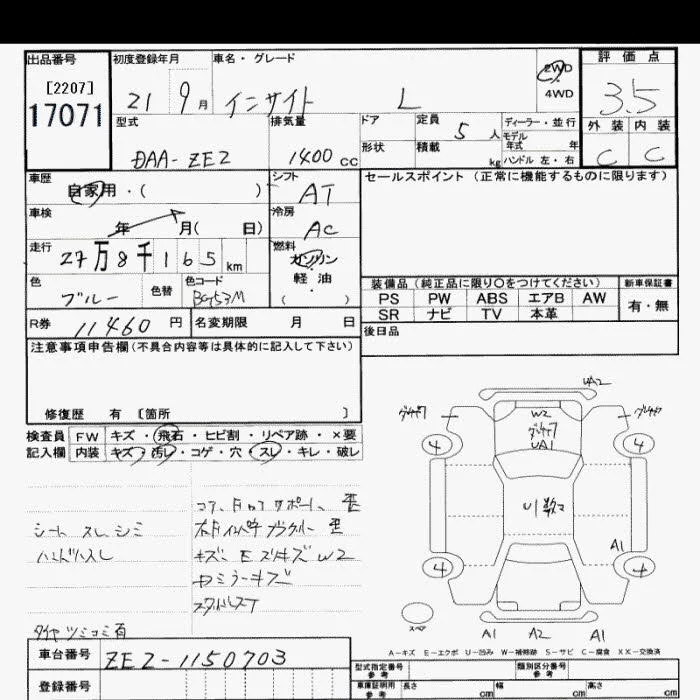 出品番号
[2207]
17071
初度登録年月
21 9月
車名・グレード
インサイト L
2WD
4WD
評価点
3.5
外装 内装
C C
型式
DAA-ZE2
排気量
1400cc
ドア
形状
定員
5人
積載
kg
ディーラー・並行
モデル
年式 年
ハンドル 左・右
車歴
自家用・( )
シフト
AT
セールスポイント(正常に機能するものに限ります)
車検
年 月( 日)
冷房
AC
走行
27万8千165km
燃料
ガソリン
軽油
( )
色
ブルー
色替
色コード
BG53M
装備品(純正品に限り○をつけてください)
新車保証書
PS PW ABS エアB AW
SR ナビ TV 本革
有・無
R券
11460円
名変期限 月 日
後日品
注意事項申告欄(不具合内容等は具体的に記入して下さい)
修復歴 有 〔箇所 〕
検査員
記入欄
FW キズ・飛石・ヒビ割・リペア跡・×要
内装 キズ・汚レ・コゲ・穴・スレ・キレ・破レ
シート スレ、シミ
ハンドルスレ
キズ E スリキズ W2
タイヤツミコミ有
UA2
W2
UA1
4
4
U1数コ
A1
4
4
スペア
A1 A2 A1
A-キズ E-エクボ U-凹み W-補修跡 S-サビ C-腐食 XX-交換済
車台番号
ZE2-1150703
登録番号
型式指定番号
参考
類別区分番号
参考
車庫証明用
参考
長さ cm
幅 cm
高さ cm